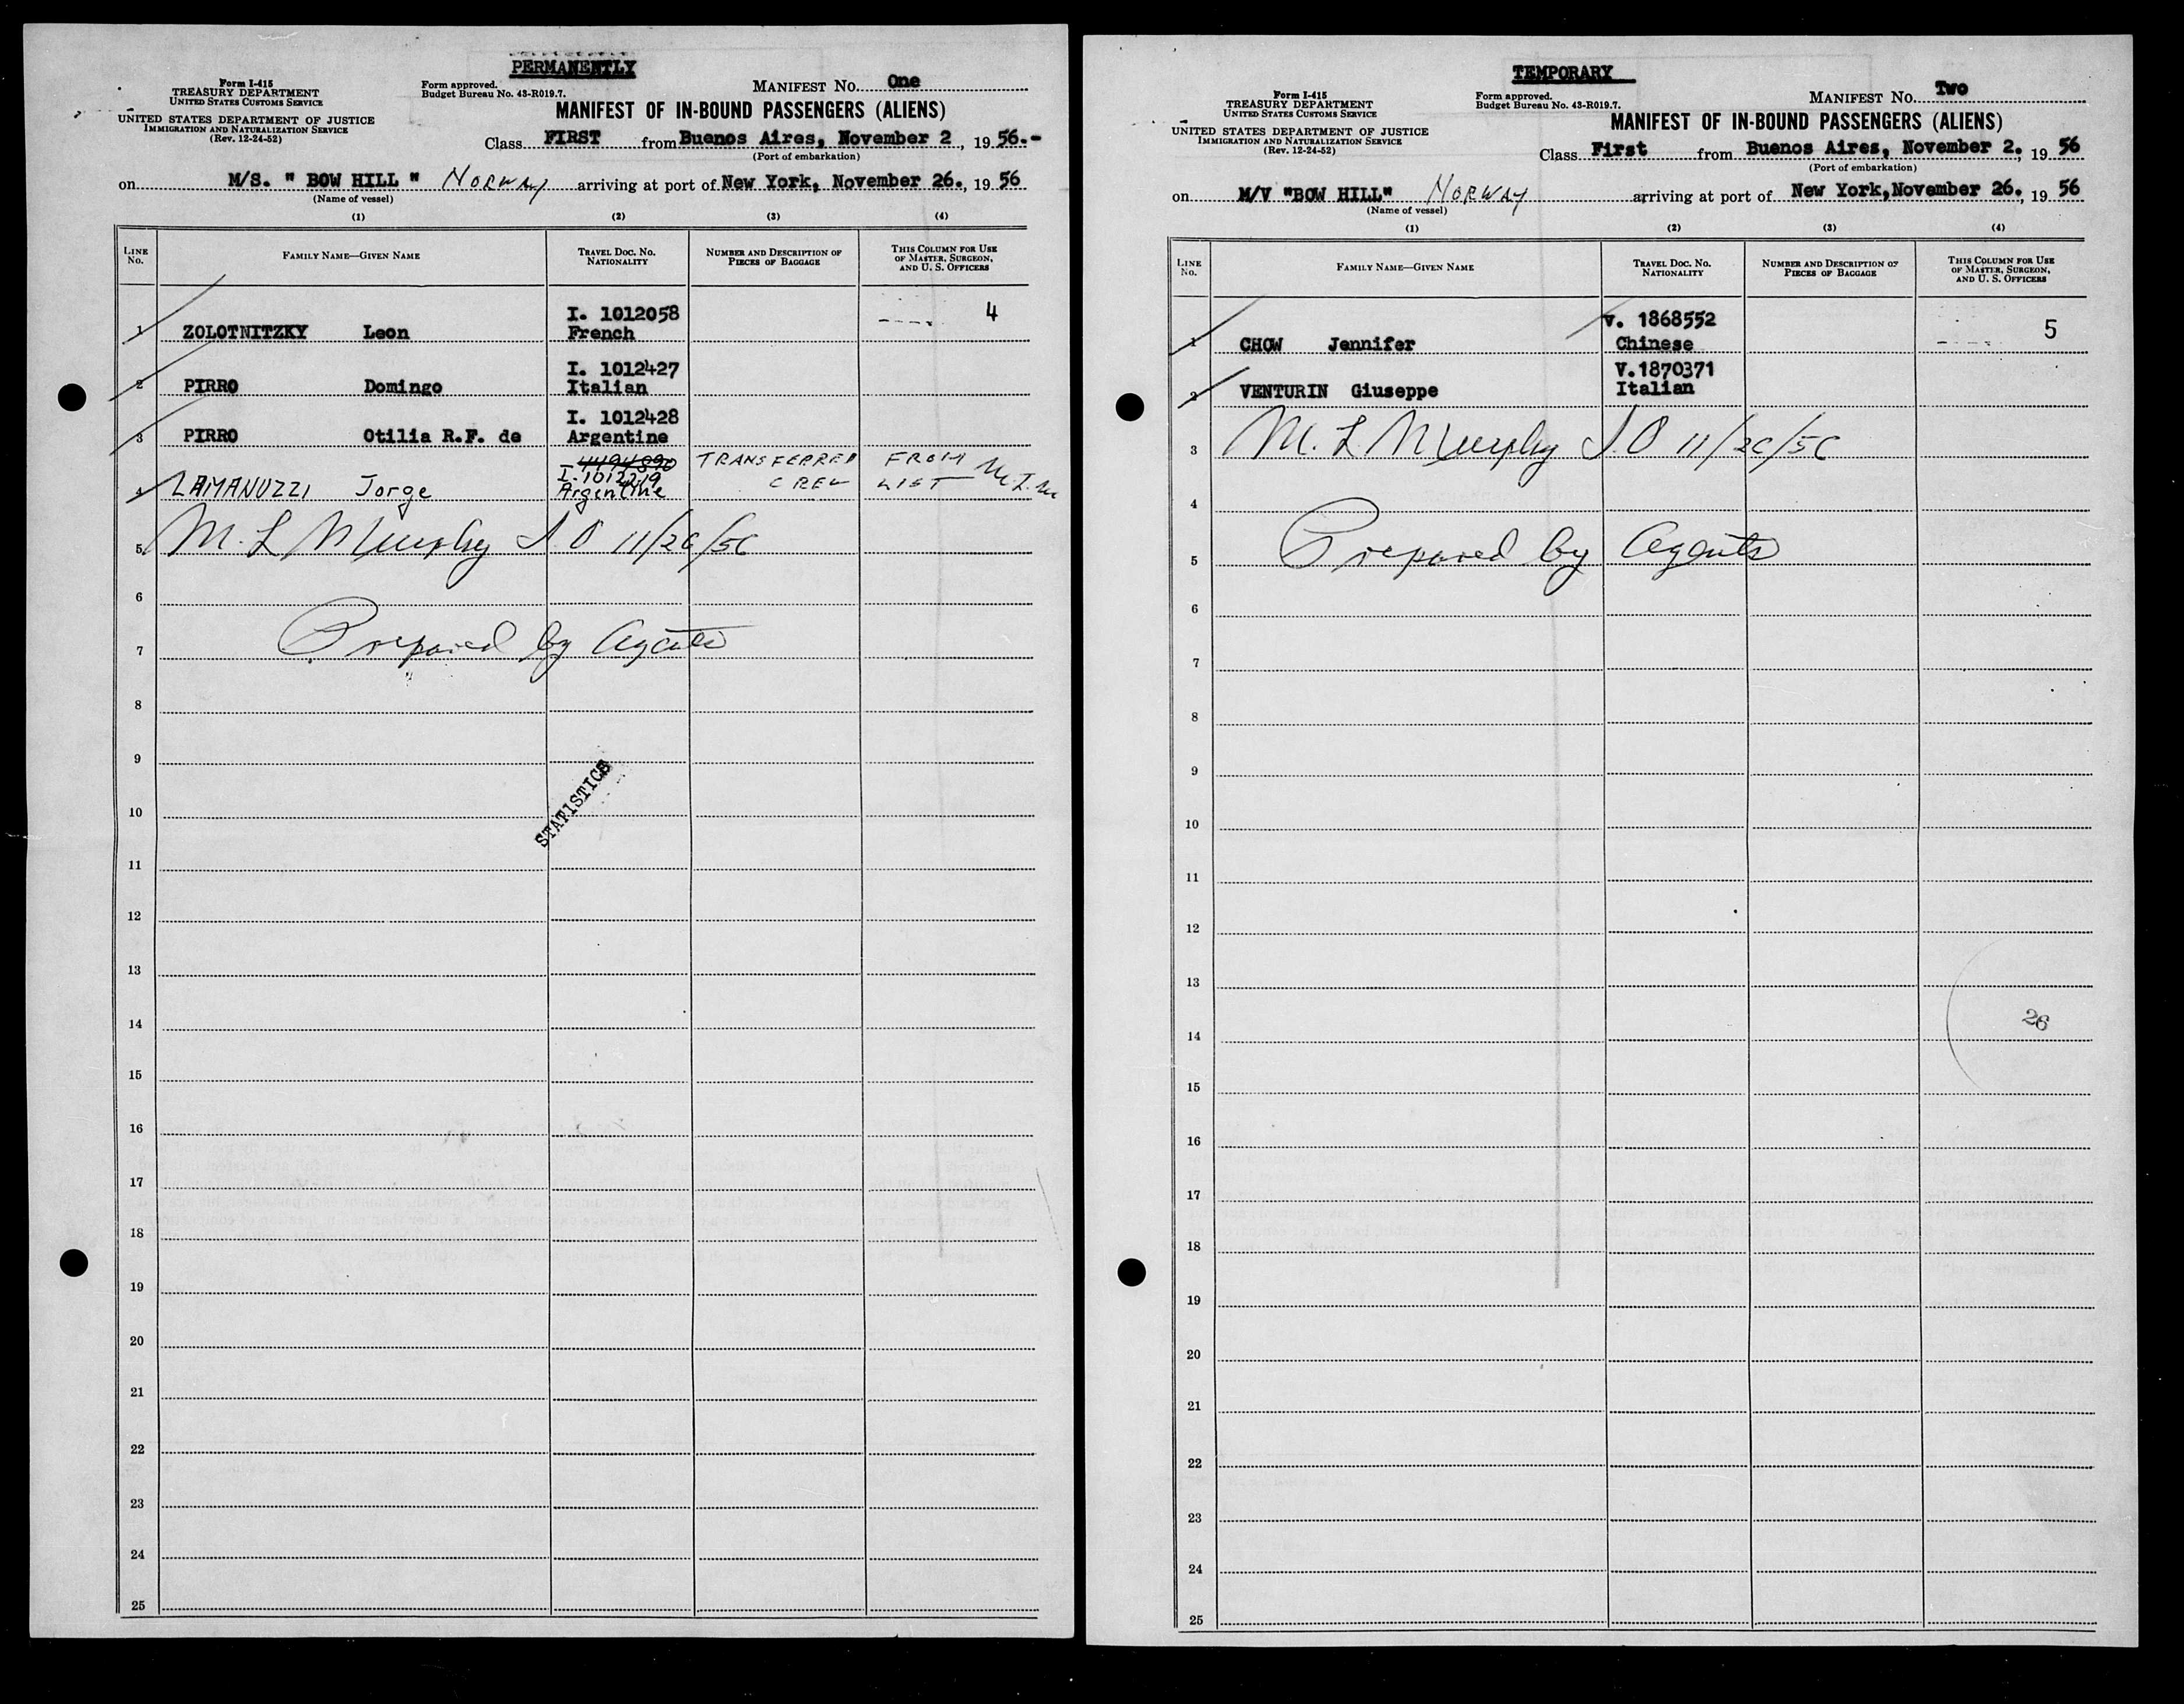 PERMANENTLY
Form I-415
TREASURY DEPARTMENT
UNITED STATES CUSTOMS SERVICE
UNITED STATES DEPARTMENT OF JUSTICE
IMMIGRATION AND NATURALIZATION SERVICE
(Rev. 12-24-52)
Form approved.
Budget Bureau No. 43-R019.7.
MANIFEST NO. One
MANIFEST OF IN-BOUND PASSENGERS (ALIENS)
Class FIRST from Buenos Aires, November 2, 19 56.-
(Port of embarkation)
on M/S. " BOW HILL " NORWAY arriving at port of New York, November 26., 19 56
(Name of vessel)
(1) (2) (3) (4)
LINE NO. FAMILY NAME—GIVEN NAME TRAVEL DOC. NO. NATIONALITY NUMBER AND DESCRIPTION OF PIECES OF BAGGAGE THIS COLUMN FOR USE OF MASTER, SURGEON, AND U. S. OFFICERS
4
I. 1012058
1 ZOLOTNITZKY Leon French
I. 1012427
2 PIRRO Domingo Italian
I. 1012428
3 PIRRO Otilia R.F. de Argentine
TRANSFERRED FROM
I-1012219 CREW LIST M.L.M
4 LAMANUZZI Jorge Argentine
5 M. L Murphy I.O 11/26/56
6
7 Prepared by Agents
8
9
STATISTICS
10
11
12
13
14
15
16
17
18
19
20
21
22
23
24
25
TEMPORARY
Form I-415
TREASURY DEPARTMENT
UNITED STATES CUSTOMS SERVICE
UNITED STATES DEPARTMENT OF JUSTICE
IMMIGRATION AND NATURALIZATION SERVICE
(Rev. 12-24-52)
Form approved.
Budget Bureau No. 43-R019.7.
MANIFEST NO. Two
MANIFEST OF IN-BOUND PASSENGERS (ALIENS)
Class First from Buenos Aires, November 2., 19 56
(Port of embarkation)
on M/V "BOW HILL" NORWAY arriving at port of New York, November 26., 19 56
(Name of vessel)
(1) (2) (3) (4)
LINE NO. FAMILY NAME—GIVEN NAME TRAVEL DOC. NO. NATIONALITY NUMBER AND DESCRIPTION OF PIECES OF BAGGAGE THIS COLUMN FOR USE OF MASTER, SURGEON, AND U. S. OFFICERS
V. 1868552 5
1 CHOW Jennifer Chinese
V.1870371
2 VENTURIN Giuseppe Italian
3 M. L Murphy I.O 11/26/56
4
5 Prepared by Agents
6
7
8
9
10
11
12
13
26
14
15
16
17
18
19
20
21
22
23
24
25